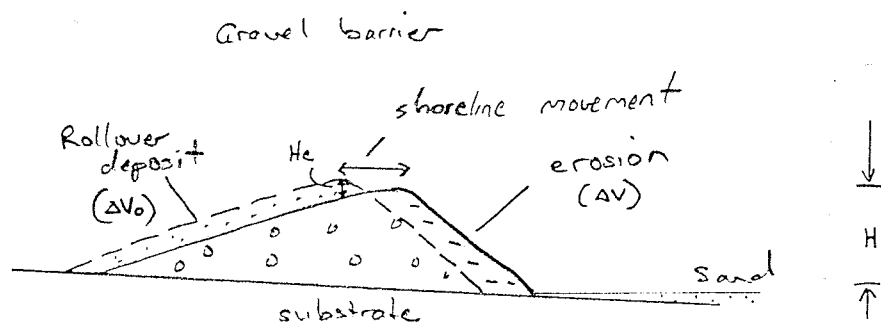 Gravel barrier
shoreline movement
Rollover
deposit
(ΔVo)
He
erosion
(ΔV)
H
Sand
substrate